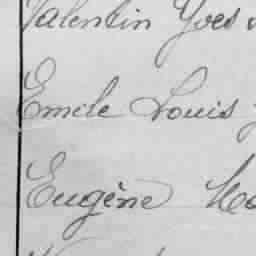 Valentin Yves
Emile Louis
Eugène